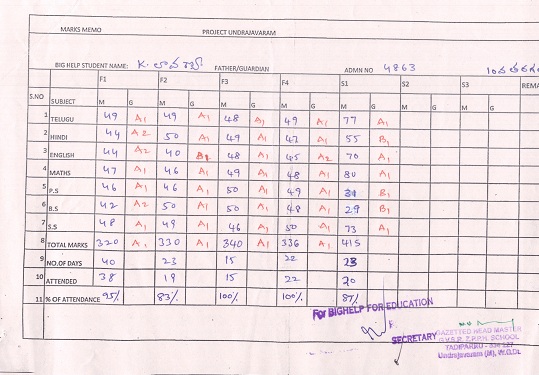 MARKS MEMO PROJECT UNDRAJAVARAM
BIG HELP STUDENT NAME: K. FATHER/GUARDIAN ADMN NO 4863
F1 F2 F3 F4 S1 S2 S3 REMA
S.NO SUBJECT M G M G M G M G M G M G M G
1 TELUGU 49 A1 49 A1 48 A1 49 A1 77 A1
2 HINDI 44 A2 50 A1 49 A1 47 A1 55 B1
3 ENGLISH 44 A2 40 48 A1 45 A2 70 A1
4 MATHS 47 A1 46 A1 49 A1 48 A1 80 A1
5 P.S 46 A1 46 A1 50 A1 49 A1 31 B1
6 B.S 42 A2 50 A1 50 A1 48 A1 29 B1
7 S.S 48 A1 49 A1 46 A1 50 A1 73 A1
8 TOTAL MARKS 320 A1 330 A1 340 A1 336 A1 415
9 NO.OF DAYS 40 23 15 22 23
10 ATTENDED 38 19 15 22 20
11 % OF ATTENDANCE 95% 83% 100% 100% 87%
For BIGHELP FOR EDUCATION
SECRETARY
GAZETTED HEAD MASTER
G.V.S.P. Z.P.P.H. SCHOOL
TADIPARRU
Undrajavaram (M), W.G.Dt.